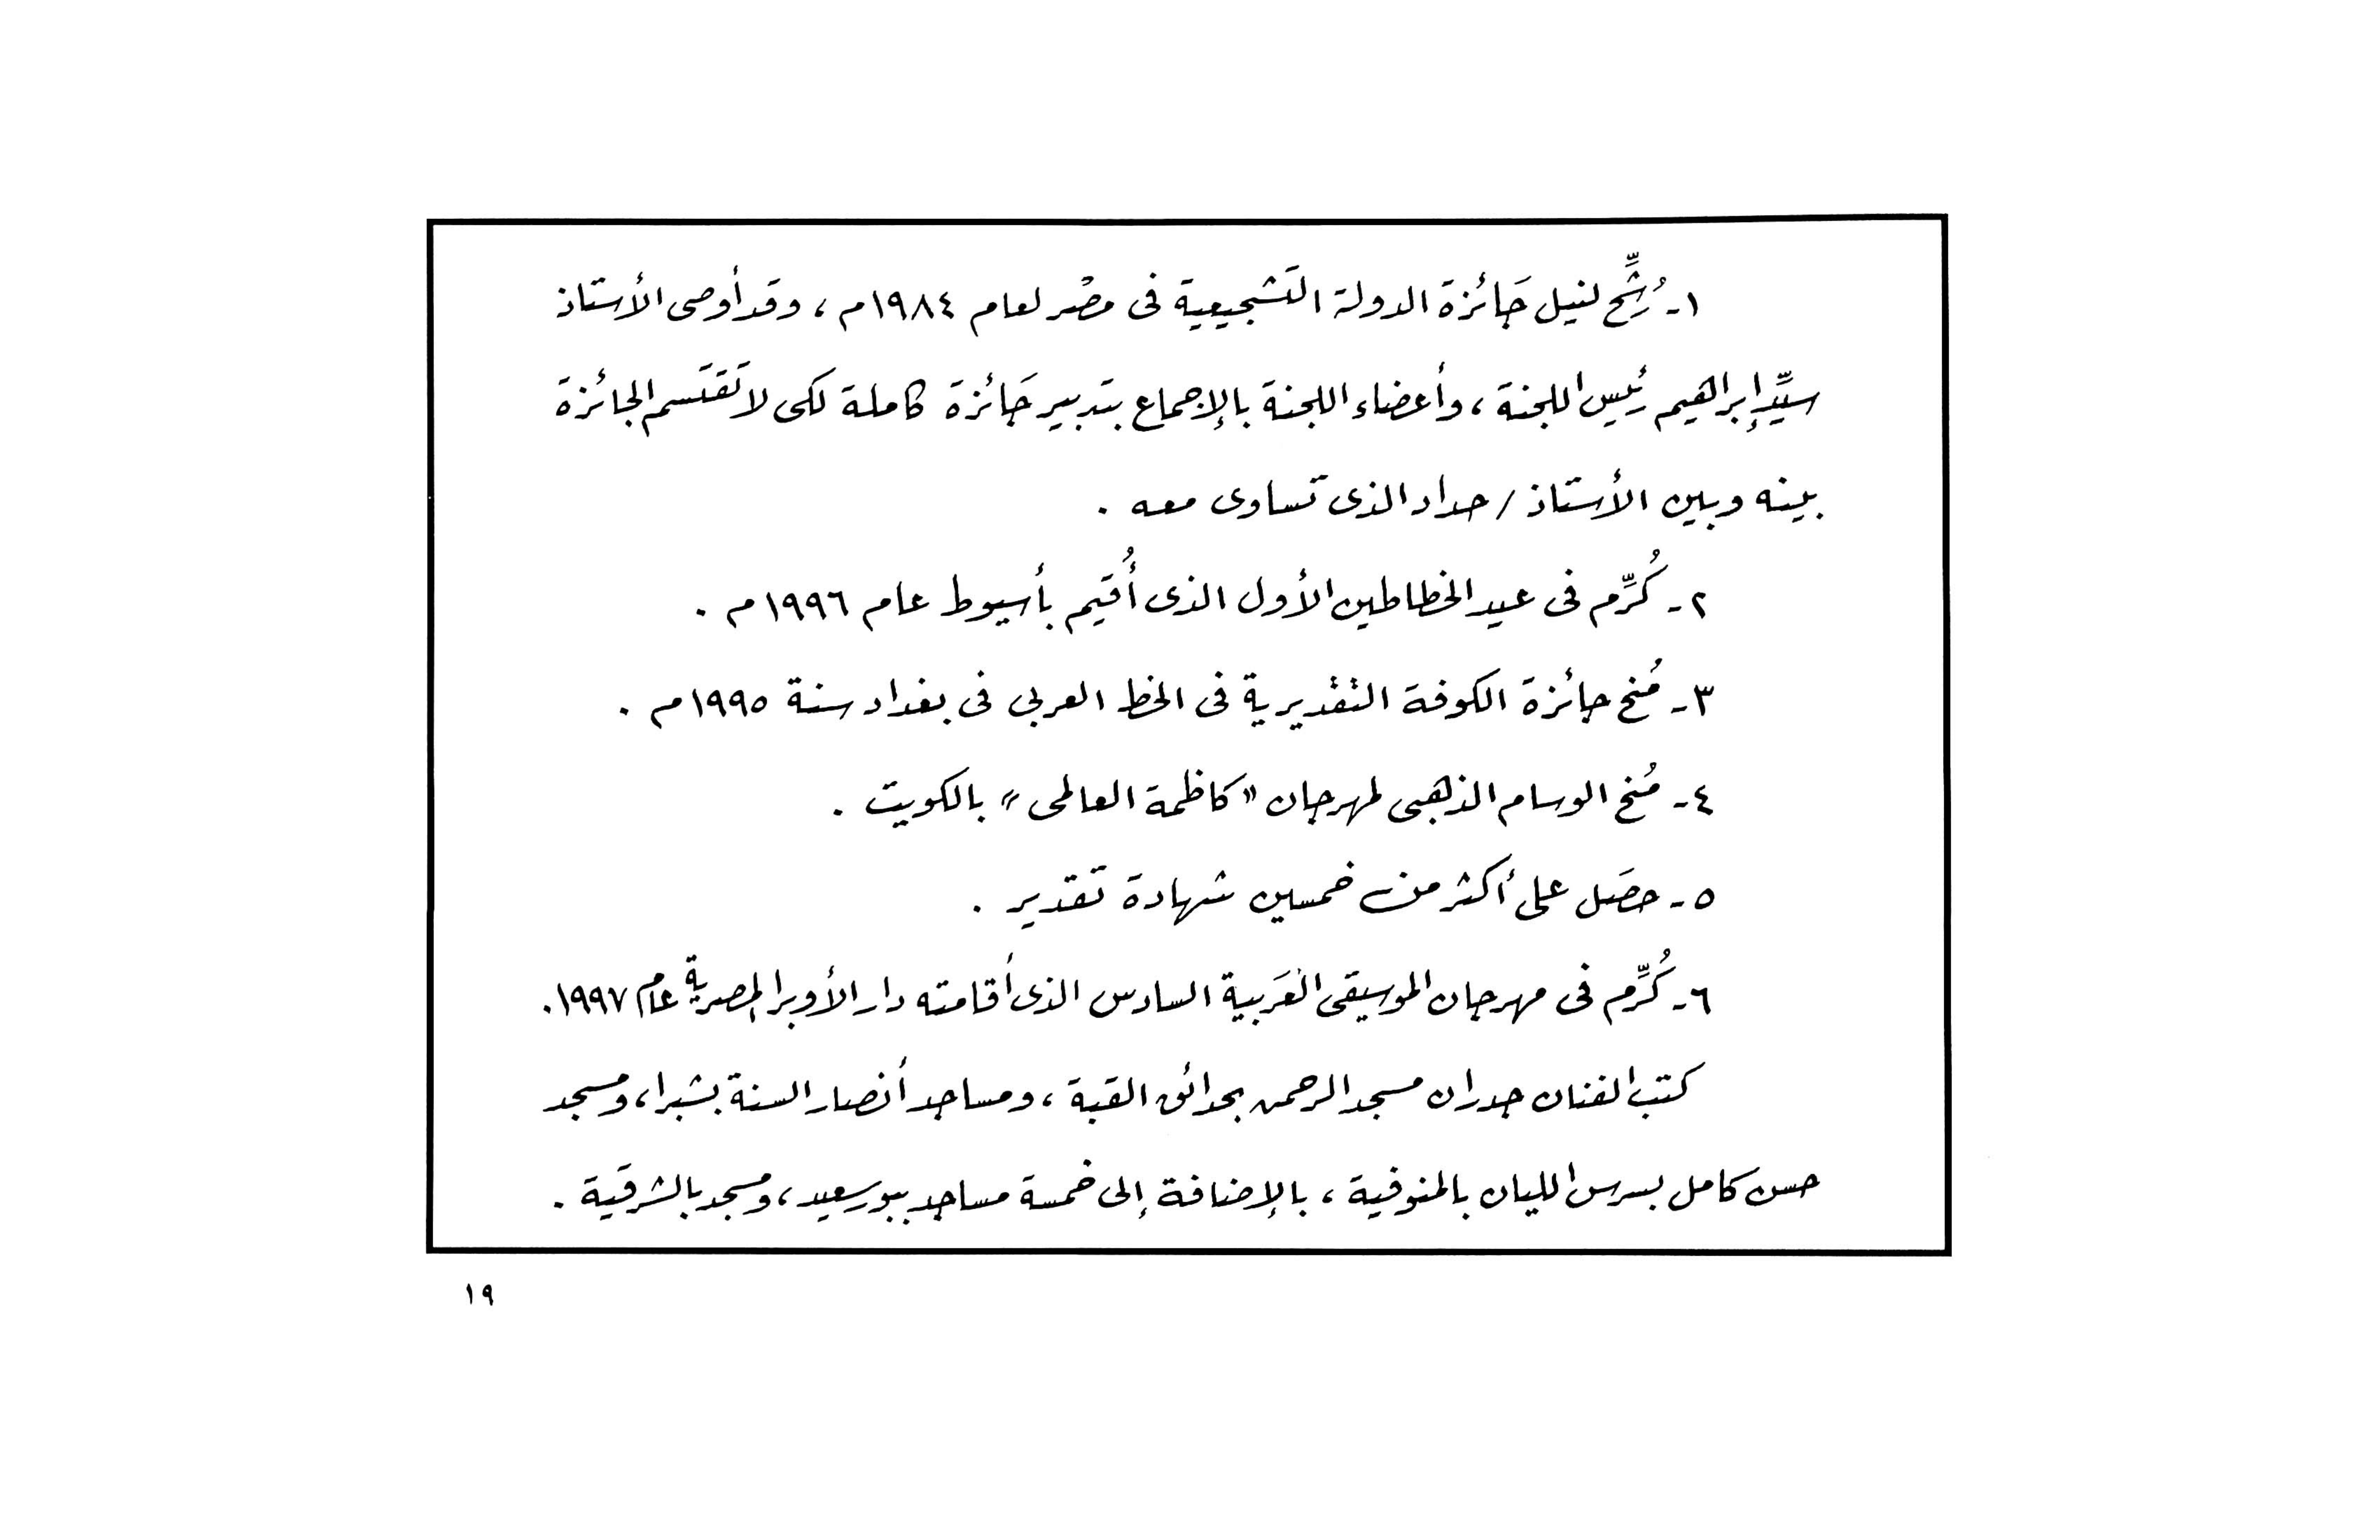 ١- رُشِّح لنيل جَائزة الدولة التَشجيعية فى مصْر لعام ١٩٨٤م ، وقد أوصى الأستاذ
سيِّد إبراهيم رئيس اللجنة ، وأعضاء اللجنة بالإجماع بتدبير جَائزة كاملة لكى لا تَقتَسم الجائزة
بينه وبين الأستاذ / حداد الذى تساوى معه .
٢- كُرِّم فى عيد الخطاطين الأول الذى أُقيم بأسيوط عام ١٩٩٦م .
٣- مُنح جائزة الكوفة التقديرية فى الخط العربي فى بغداد سنة ١٩٩٥م .
٤- مُنح الوسام الذهبى لمهرجان « كاظمة العالمى » بالكويت .
٥- حصَل على أكثر من خمسين شهادة تقدير .
٦- كُرِّم فى مهرجان الموسيقى العَربية السادس الذى أقامته دار الأوبرا المصرية عام ١٩٩٧.
كتب الفنان جدران مسجد الرحمن بحدائق القبة ، ومساجد أنصار السنة بشبرا ، ومسجد
حسن كامل بسرس الليان بالمنوفية ، بالإضافة إلى خمسة مساجد ببورسعيد ، ومسجد بالشرقية .
١٩